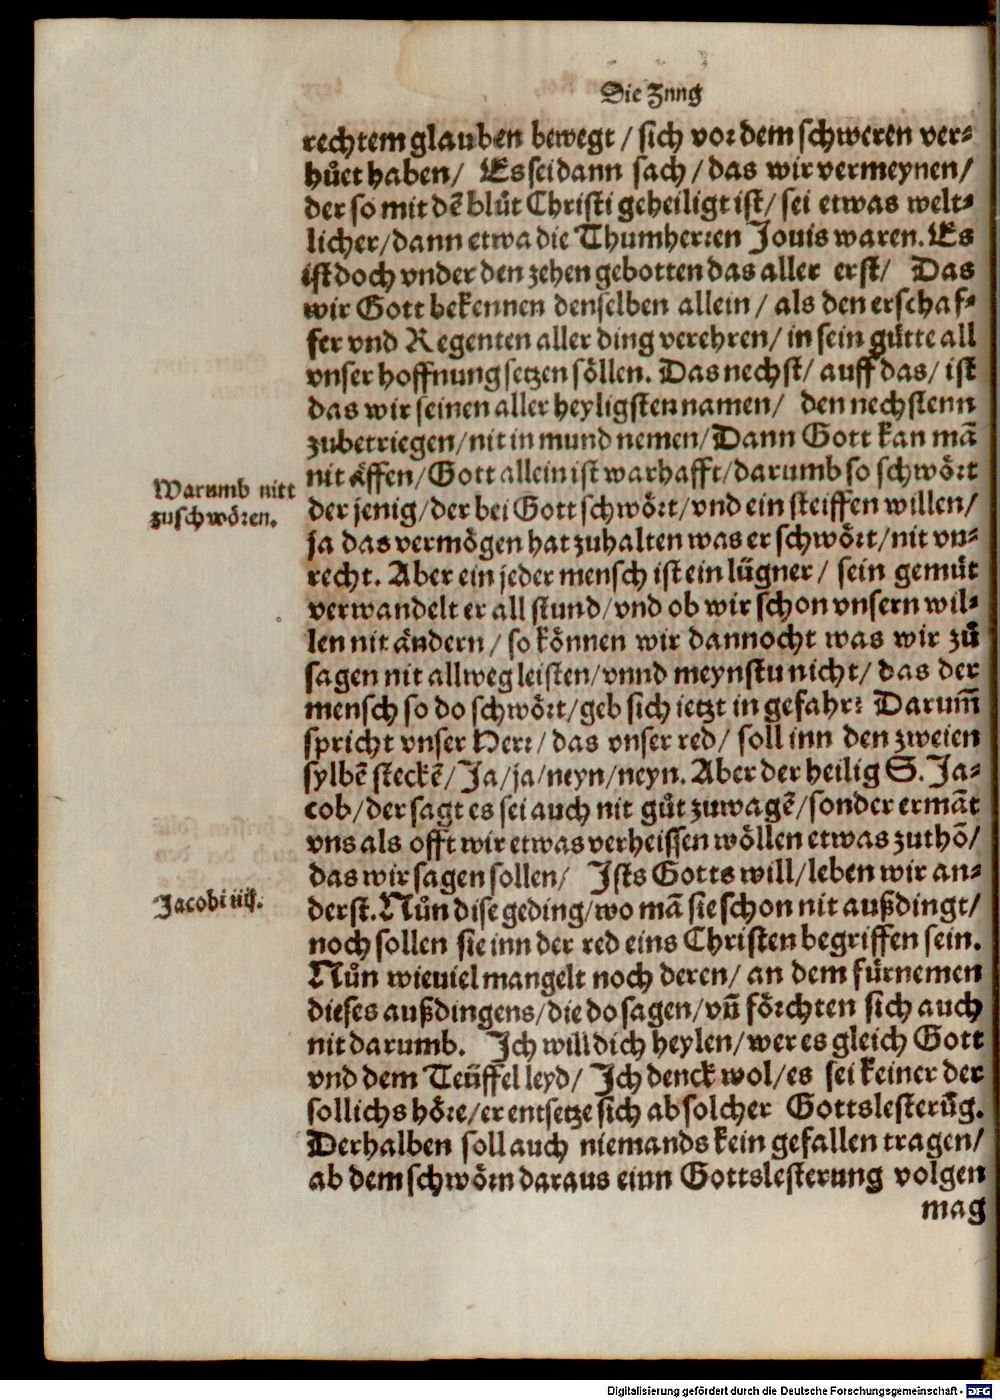 Die Znng
rechtem glauben bewegt / sich vor dem schweren ver⸗
hůet haben / Es sei dann sach / das wir vermeynen /
der so mit dē blůt Christi geheiligt ist / sei etwas welt⸗
licher / dann etwa die Thumherren Jouis waren. Es
ist doch vnder den zehen gebotten das aller erst / Das
wir Gott bekennen denselben allein / als den erschaf⸗
fer vnd Regenten aller ding verehren / in sein gůtte all
vnser hoffnung setzen söllen. Das nechst / auff das / ist
das wir seinen aller heyligsten namen / den nechstenn
zubetriegen / nit in mund nemen / Dann Gott kan mā
nit äffen / Gott allein ist warhafft / darumb so schwört
Warumb nitt
zuschwören.
der jenig / der bei Gott schwört / vnd ein steiffen willen /
ja das vermögen hat zuhalten was er schwört / nit vn⸗
recht. Aber ein jeder mensch ist ein lügner / sein gemüt
verwandelt er all stund / vnd ob wir schon vnsern wil⸗
len nit ändern / so können wir dannocht was wir zů
sagen nit allweg leisten / vnnd meynstu nicht / das der
mensch so do schwört / geb sich ietzt in gefahr? Darum̄
spricht vnser Herr / das vnser red / soll inn den zweien
sylbē steckē / Ja / ja / neyn / neyn. Aber der heilig S. Ja⸗
cob / der sagt es sei auch nit gůt zuwagē / sonder ermāt
vns als offt wir etwas verheissen wöllen etwas zuthō /
das wir sagen sollen / Ists Gotts will / leben wir an⸗
Jacobi iiij.
derst. Nůn dise geding / wo mā sie schon nit außdingt /
noch sollen sie inn der red eins Christen begriffen sein.
Nůn wieuiel mangelt noch deren / an dem fürnemen
dieses außdingens / die do sagen / vn̄ förchten sich auch
nit darumb. Ich will dich heylen / wer es gleich Gott
vnd dem Teüffel leyd / Ich denck wol / es sei keiner der
sollichs höre / er entsetze sich ab solcher Gottslesterūg.
Derhalben soll auch niemands kein gefallen tragen /
ab dem schwörn daraus einn Gottslesterung volgen
mag
Digitalisierung gefördert durch die Deutsche Forschungsgemeinschaft - DFG